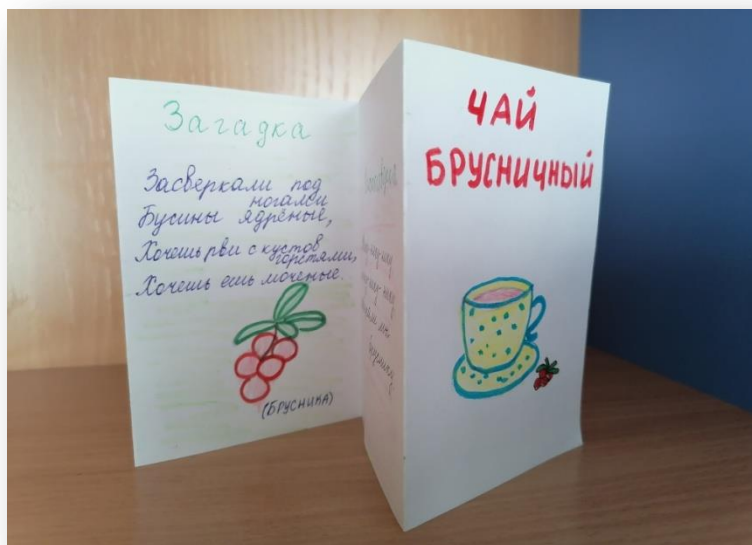 Загадка
Засверкали под
ногами
Бусины ядрёные,
Хочешь рви с кустов
горстями,
Хочешь ешь мочёные.
(БРУСНИКА)
ЧАЙ
БРУСНИЧНЫЙ